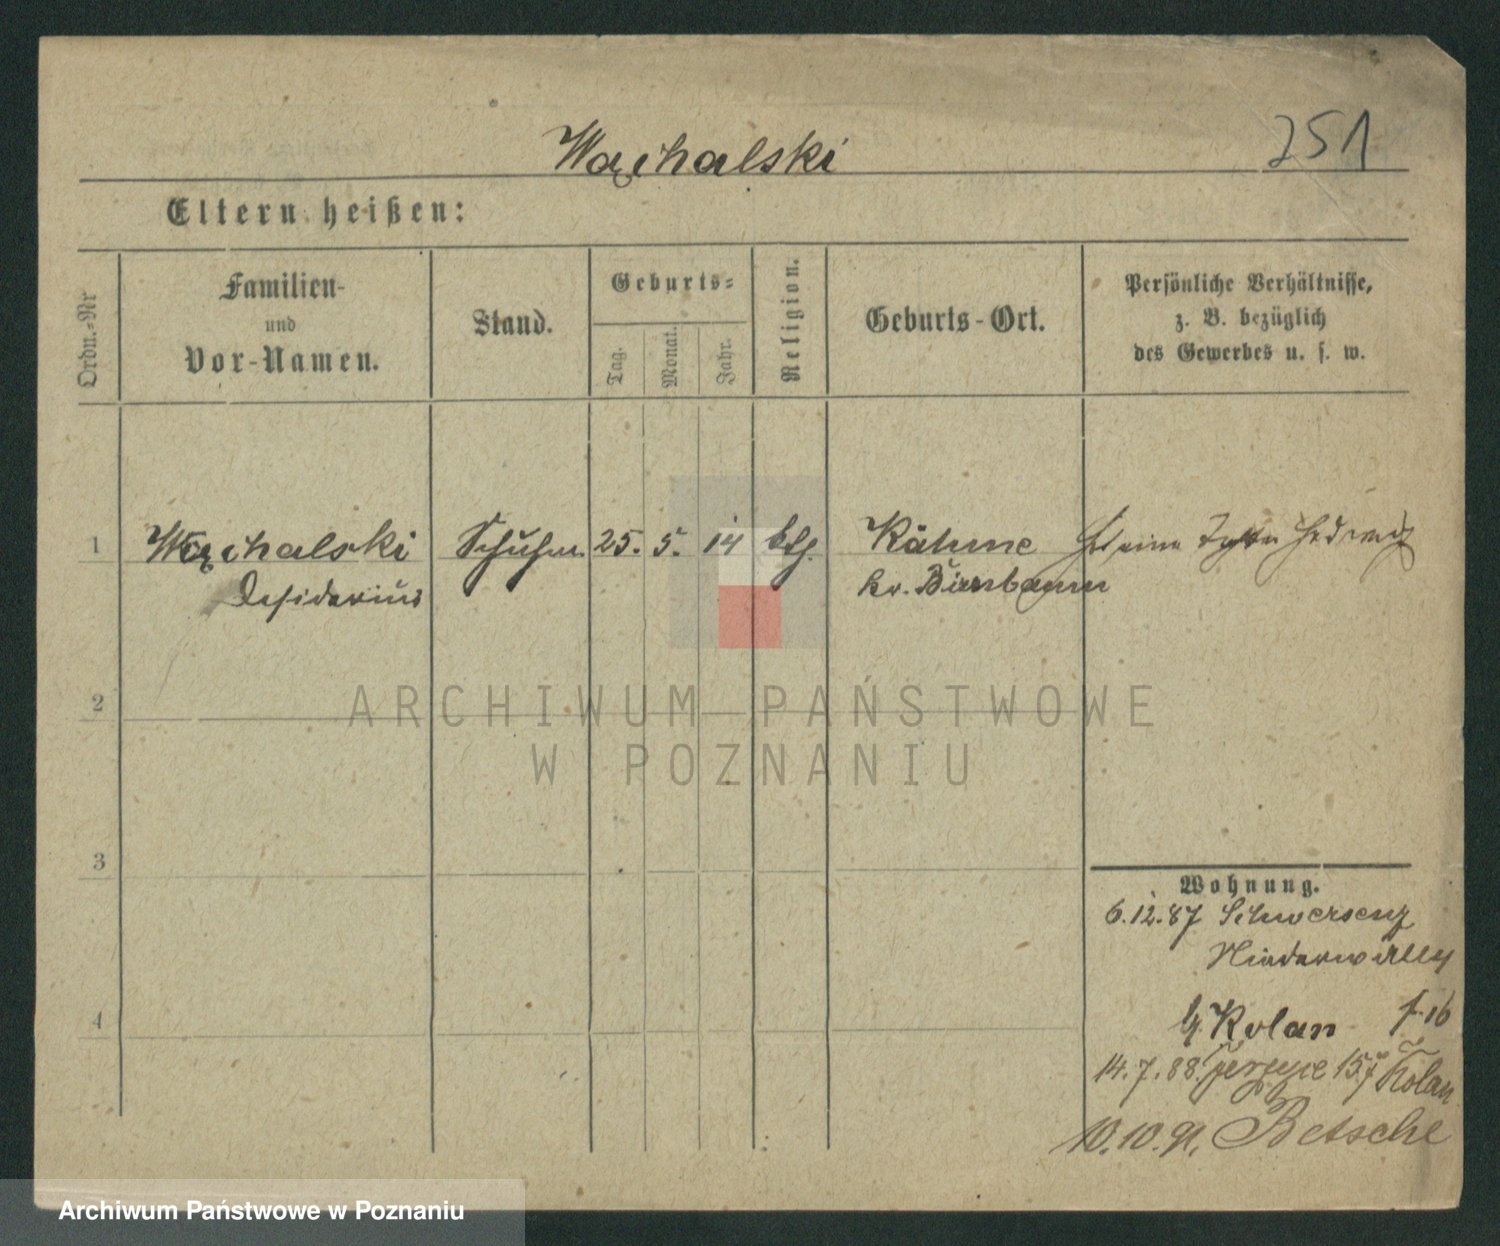 Wąchalski
251
Eltern heißen:
Ordn.-Nr
Familien-
und
Vor-Namen.
Stand.
Geburts-
Tag.
Monat.
Jahr.
Religion.
Geburts-Ort.
Persönliche Verhältnisse,
z. B. bezüglich
des Gewerbes u. s. w.
1
Wąchalski
Desiderius
Schuhm.
25.
5.
14
kth.
Kähme
Kr. Birnbaum
Hedwig
2
ARCHIWUM PAŃSTWOWE
W POZNANIU
3
Wohnung.
6.12.87 Schwersenz
4
Kolan
14.7.88. 15 Kolan
10.10.91. Betsche
Archiwum Państwowe w Poznaniu